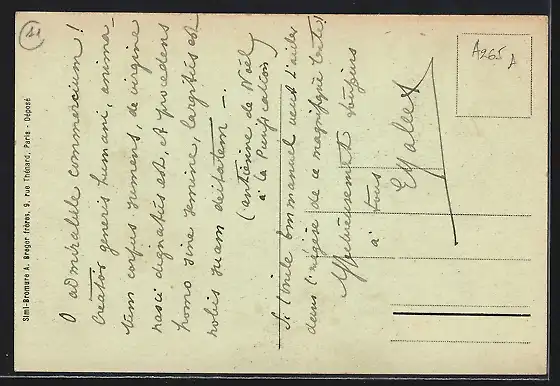 O admirabile commercium!
Creator generis humani, anima-
tum corpus sumens, de virgine
nasci dignatus est, et procedens
homo sine semine, largitus est
nobis suam deitatem —.
(antienne de Noël
à la Purification)
Si l'oncle Emmanuel veut l'aider
dans l'exégèse de ce magnifique texte!
Affectueusement toujours
à tous
A265 A
Simi-Bromure A. Breger frères, 9, rue Thénard, Paris - Déposé